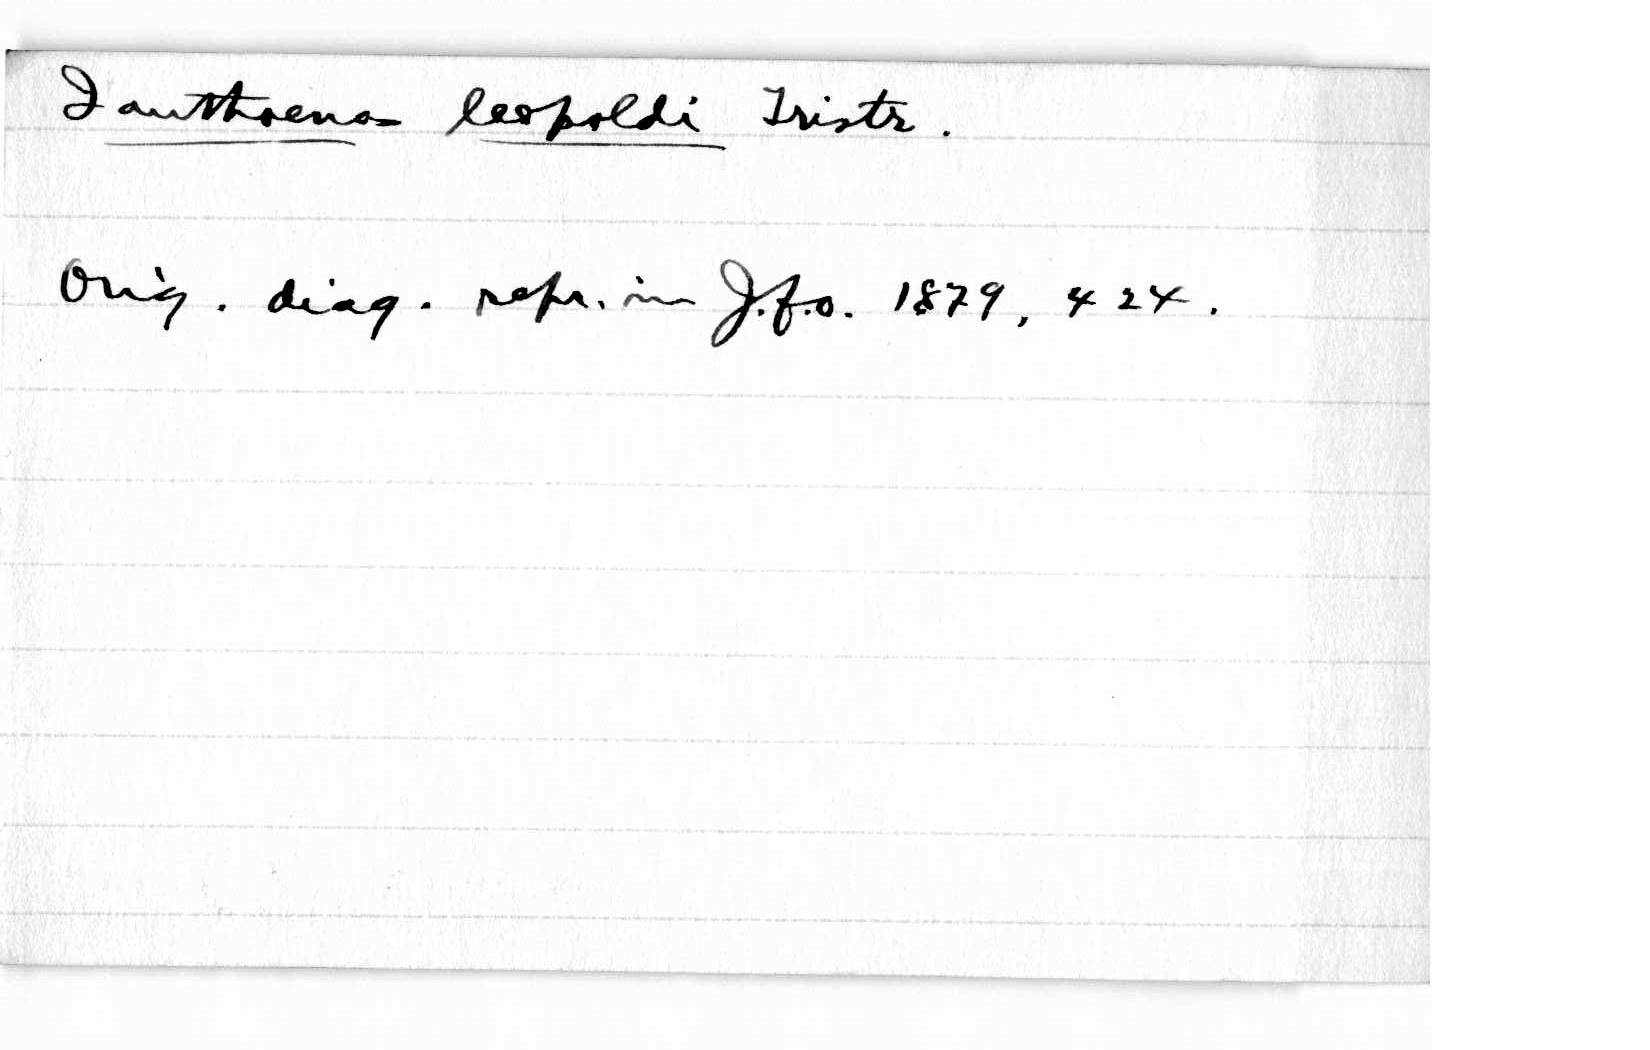 Ianthoenas leopoldi Tristr.
Orig. diag. repr. in J.f.o. 1879, 424.